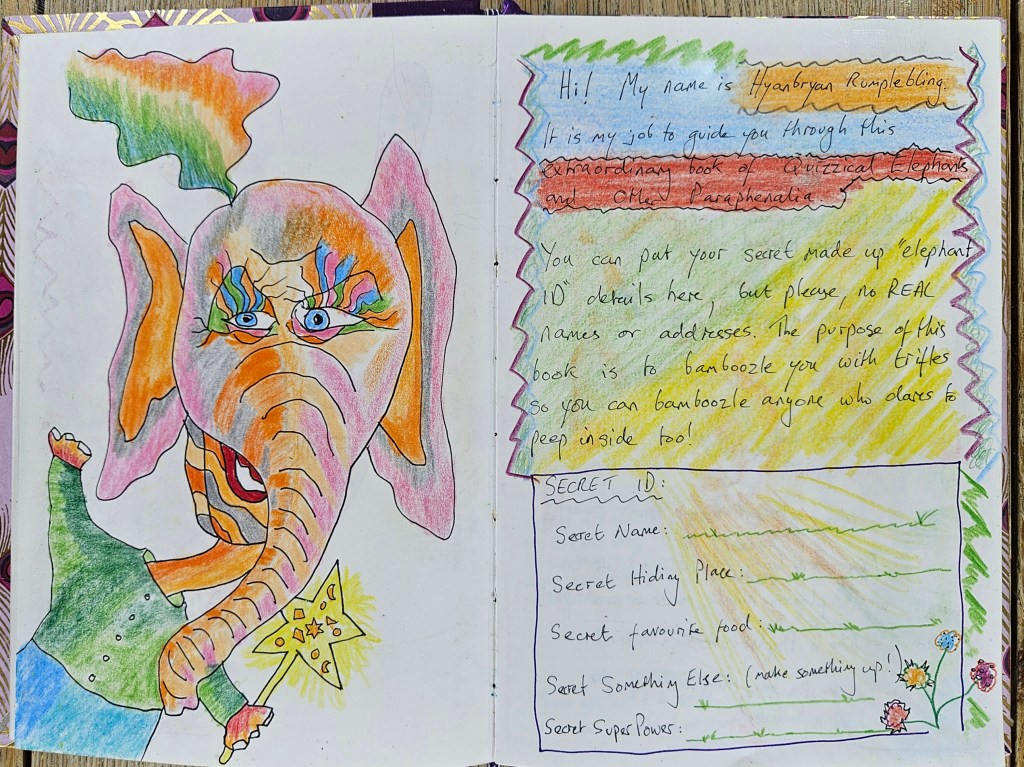 Hi! My name is Hyanbryan Rumplebling.
It is my job to guide you through this
extraordinary book of Quizzical Elephants
and Other Paraphenalia.
You can put your secret made up "elephant
ID" details here, but please, no REAL
names or addresses. The purpose of this
book is to bamboozle you with trifles
so you can bamboozle anyone who dares to
peep inside too!
SECRET ID:
Secret Name:
Secret Hiding Place:
Secret favourite food:
Secret Something Else: (make something up!)
Secret SuperPower: